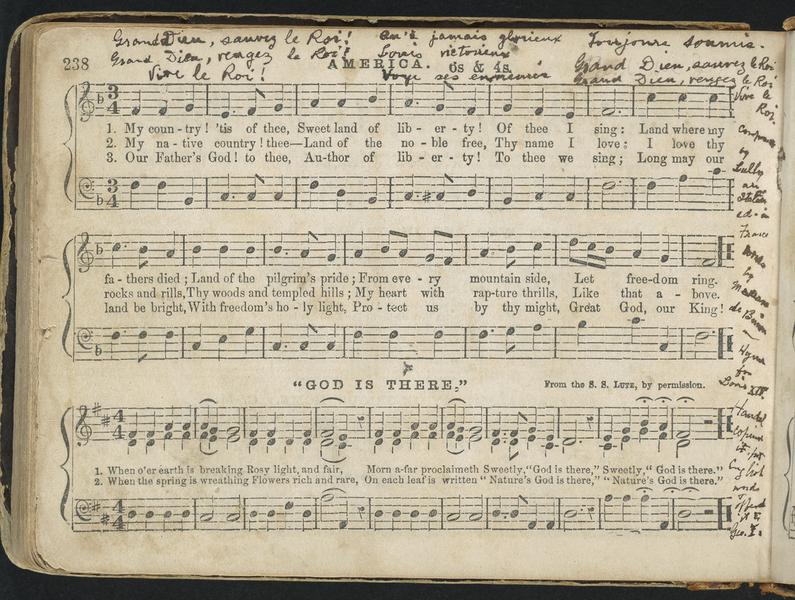 Grand Dieu, sauvez le Roi! Qu'à jamais glorieux Toujours soumis.
Grand Dieu, vengez le Roi! Louis victorieux Grand Dieu, sauvez le Roi
Vive le Roi! Voye ses ennemis Grand Dieu, vengez le Roi
Vive le
Roi.
238
AMERICA. 6s & 4s.
1. My coun-try! 'tis of thee, Sweet land of lib-er-ty! Of thee I sing: Land where my
2. My na-tive country! thee—Land of the no-ble free, Thy name I love: I love thy
3. Our Father's God! to thee, Au-thor of lib-er-ty! To thee we sing; Long may our
Composed
by
Lully
an
Italian
ed. in
France
fa-thers died; Land of the pilgrim's pride; From eve-ry mountain side, Let free-dom ring.
rocks and rills, Thy woods and templed hills; My heart with rap-ture thrills, Like that a-bove.
land be bright, With freedom's ho-ly light, Pro-tect us by thy might, Great God, our King!
Words
by
Madame
de
Hymn
for
Louis XIV.
"GOD IS THERE."
From the S. S. LUTE, by permission.
1. When o'er earth is breaking Rosy light, and fair, Morn a-far proclaimeth Sweetly, "God is there," Sweetly, "God is there."
2. When the spring is wreathing Flowers rich and rare, On each leaf is written "Nature's God is there," "Nature's God is there."
Handel
English
words
Geo. I.